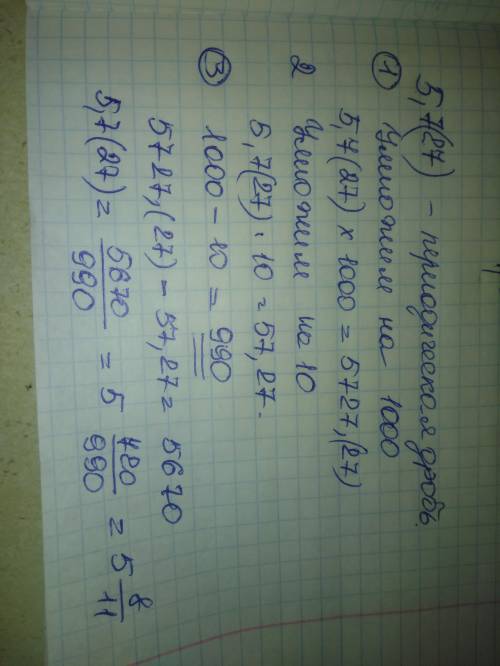 5,7(27) - периодическая дробь.
① Умножим на 1000
5,7(27) × 1000 = 5727,(27)
2 Умножим на 10
5,7(27) · 10 = 57,27.
③ 1000 - 10 = 990
5727,(27) - 57,27 = 5670
5,7(27) = 5670/990 = 5 720/990 = 5 8/11